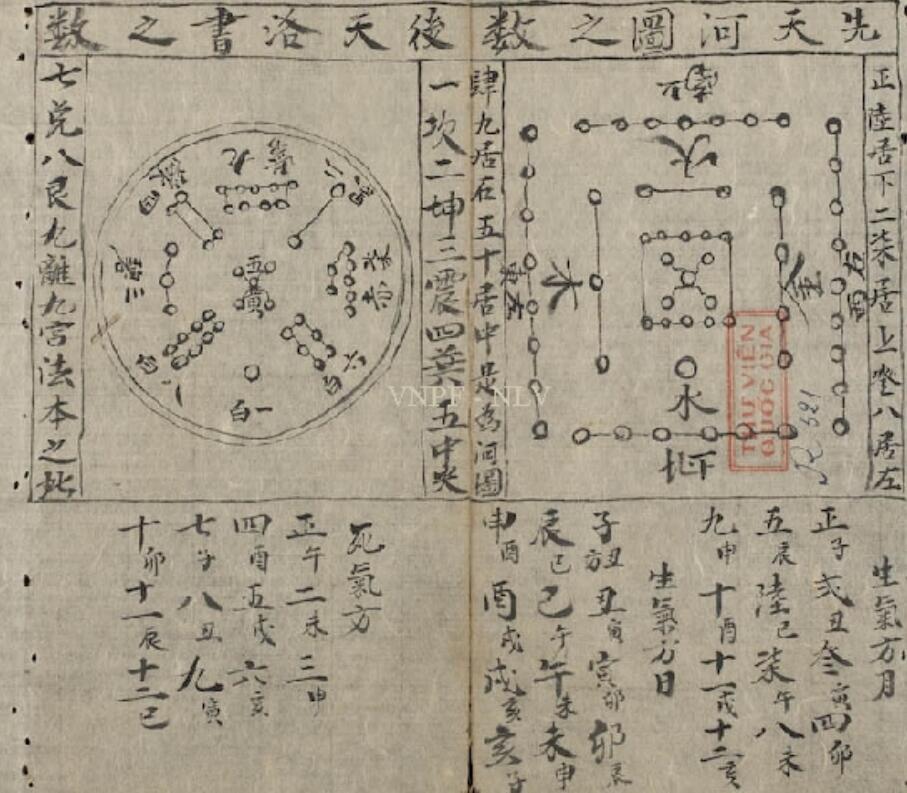 先天河圖之数
後天洛書之数
正陸居下二柒居上叄八居左
肆九居右五十居中是為河圖
火
木
金
水
一坎二坤三震四巽六五中央
七兌八艮九離九宮法本之此
九
五黃
六白
一白
八白
生氣方月
正子弍丑叄寅四卯
五辰陸巳柒午八未
九申十酉十一戌十二亥
生氣方日
子丑方丑寅寅卯卯辰
辰巳巳午午未未申
申酉酉戌戌亥亥子
死氣方
正午二未三申
四酉五戌六亥
七子八丑九寅
十卯十一辰十二巳
THƯ VIỆN
QUỐC GIA
R 521
VNPF NLV